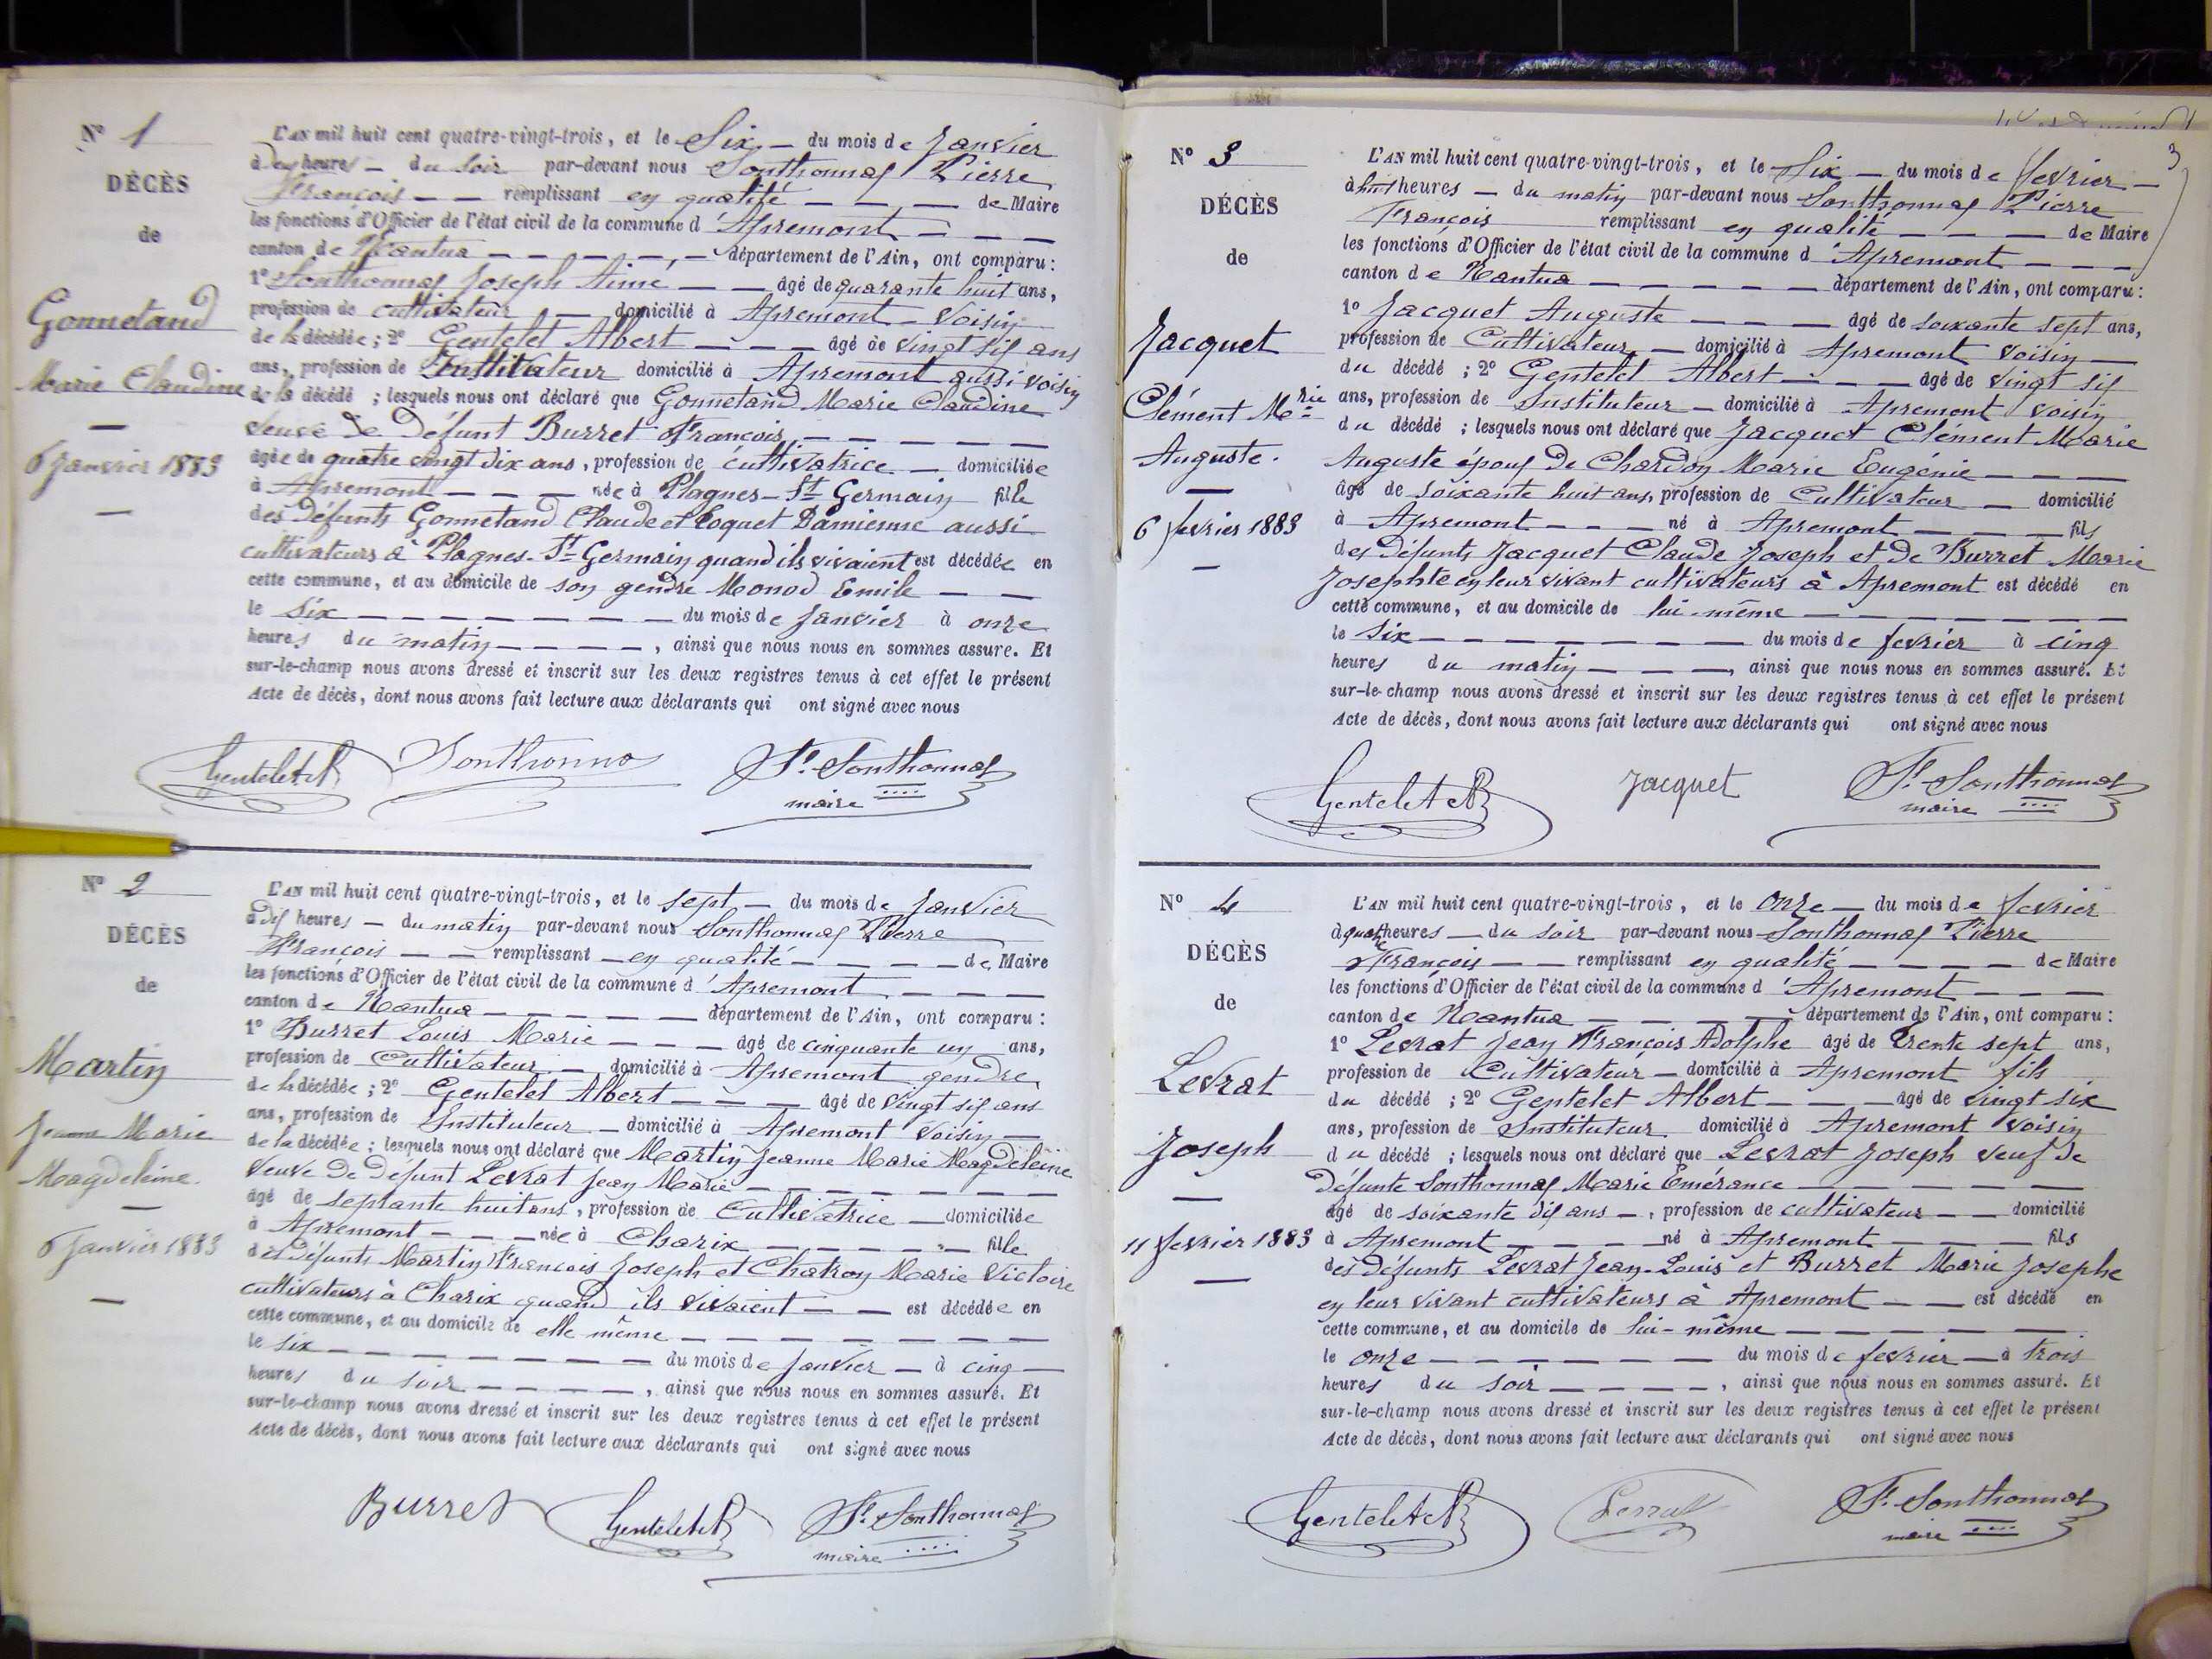 Nº 1
DÉCÈS
de
Gonnetand
Marie Claudine
6 Janvier 1883
L'AN mil huit cent quatre-vingt-trois, et le Six du mois de Janvier
à deux heures du soir par-devant nous Sonthonnax Pierre
François remplissant en qualité de Maire
les fonctions d'Officier de l'état civil de la commune d'Apremont
canton de Nantua département de l'Ain, ont comparu :
1º Sonthonnax Joseph Aimé âgé de quarante huit ans,
profession de cultivateur domicilié à Apremont Voisin
de la décédée ; 2º Gentelet Albert âgé de vingt six ans
ans, profession de Instituteur domicilié à Apremont aussi voisin
de la décédé ; lesquels nous ont déclaré que Gonnetand Marie Claudine
veuve de Défunt Burret François
âgée de quatre vingt dix ans, profession de cultivatrice domiciliée
à Apremont née à Plagnes-St Germain fille
des Défunts Gonnetand Claude et Coquet Damienne aussi
cultivateurs à Plagnes-St Germain quand ils vivaient est décédée en
cette commune, et au domicile de son gendre Monod Emile
le six du mois de Janvier à onze
heures du matin, ainsi que nous nous en sommes assuré. Et
sur-le-champ nous avons dressé et inscrit sur les deux registres tenus à cet effet le présent
Acte de décès, dont nous avons fait lecture aux déclarants qui ont signé avec nous
Gentelet Sonthonnax Fs Sonthonnax
maire
Nº 2
DÉCÈS
de
Martin
Jeanne Marie
Magdeleine.
6 Janvier 1883
L'AN mil huit cent quatre-vingt-trois, et le sept du mois de Janvier
à dix heures du matin par-devant nous Sonthonnax Pierre
François remplissant en qualité de Maire
les fonctions d'Officier de l'état civil de la commune d'Apremont
canton de Nantua département de l'Ain, ont comparu :
1º Burret Louis Marie âgé de cinquante un ans,
profession de Cultivateur domicilié à Apremont gendre
de la décédée ; 2º Gentelet Albert âgé de vingt six ans
ans, profession de Instituteur domicilié à Apremont Voisin
de la décédée ; lesquels nous ont déclaré que Martin Jeanne Marie Magdeleine
Veuve de Defunt Levrat Jean Marie
âgé de septante huit ans, profession de Cultivatrice domiciliée
à Apremont née à Charix fille
des Défunts Martin François Joseph et Chatron Marie Victoire
cultivateurs à Charix quand ils vivaient est décédée en
cette commune, et au domicile de elle même
le six du mois de Janvier à cinq
heures du soir, ainsi que nous nous en sommes assuré. Et
sur-le-champ nous avons dressé et inscrit sur les deux registres tenus à cet effet le présent
Acte de décès, dont nous avons fait lecture aux déclarants qui ont signé avec nous
Burret Gentelet Fs Sonthonnax
maire
3
Nº 3
DÉCÈS
de
Jacquet
Clément Mrie
Auguste.
6 fevrier 1883
L'AN mil huit cent quatre-vingt-trois, et le Six du mois de fevrier
à huit heures du matin par-devant nous Sonthonnax Pierre
François remplissant en qualité de Maire
les fonctions d'Officier de l'état civil de la commune d'Apremont
canton de Nantua département de l'Ain, ont comparu :
1º Jacquet Auguste âgé de soixante sept ans,
profession de Cultivateur domicilié à Apremont voisin
du décédé ; 2º Gentelet Albert âgé de vingt six
ans, profession de Instituteur domicilié à Apremont voisin
du décédé ; lesquels nous ont déclaré que Jacquet Clément Marie
Auguste époux de Chardon Marie Eugénie
âgé de soixante huit ans, profession de Cultivateur domicilié
à Apremont né à Apremont fils
des Défunts Jacquet Claude Joseph et de Burret Marie
Josephte en leur vivant cultivateurs à Apremont est décédé en
cette commune, et au domicile de lui-même
le six du mois de fevrier à cinq
heures du matin, ainsi que nous nous en sommes assuré. Et
sur-le-champ nous avons dressé et inscrit sur les deux registres tenus à cet effet le présent
Acte de décès, dont nous avons fait lecture aux déclarants qui ont signé avec nous
Gentelet Jacquet Fs Sonthonnax
maire
Nº 4
DÉCÈS
de
Levrat
Joseph
11 fevrier 1883
L'AN mil huit cent quatre-vingt-trois, et le Onze du mois de fevrier
à quatre heures du soir par-devant nous Sonthonnax Pierre
François remplissant en qualité de Maire
les fonctions d'Officier de l'état civil de la commune d'Apremont
canton de Nantua département de l'Ain, ont comparu :
1º Levrat Jean François Adolphe âgé de trente sept ans,
profession de Cultivateur domicilié à Apremont fils
du décédé ; 2º Gentelet Albert âgé de vingt six
ans, profession de Instituteur domicilié à Apremont voisin
du décédé ; lesquels nous ont déclaré que Levrat Joseph veuf de
Défunte Sonthonnax Marie Emérance
âgé de soixante dix ans, profession de cultivateur domicilié
à Apremont né à Apremont fils
des Défunts Levrat Jean-Louis et Burret Marie Josephe
en leur vivant cultivateurs à Apremont est décédé en
cette commune, et au domicile de lui-même
le onze du mois de fevrier à trois
heures du soir, ainsi que nous nous en sommes assuré. Et
sur-le-champ nous avons dressé et inscrit sur les deux registres tenus à cet effet le présent
Acte de décès, dont nous avons fait lecture aux déclarants qui ont signé avec nous
Gentelet Levrat Fs Sonthonnax
maire